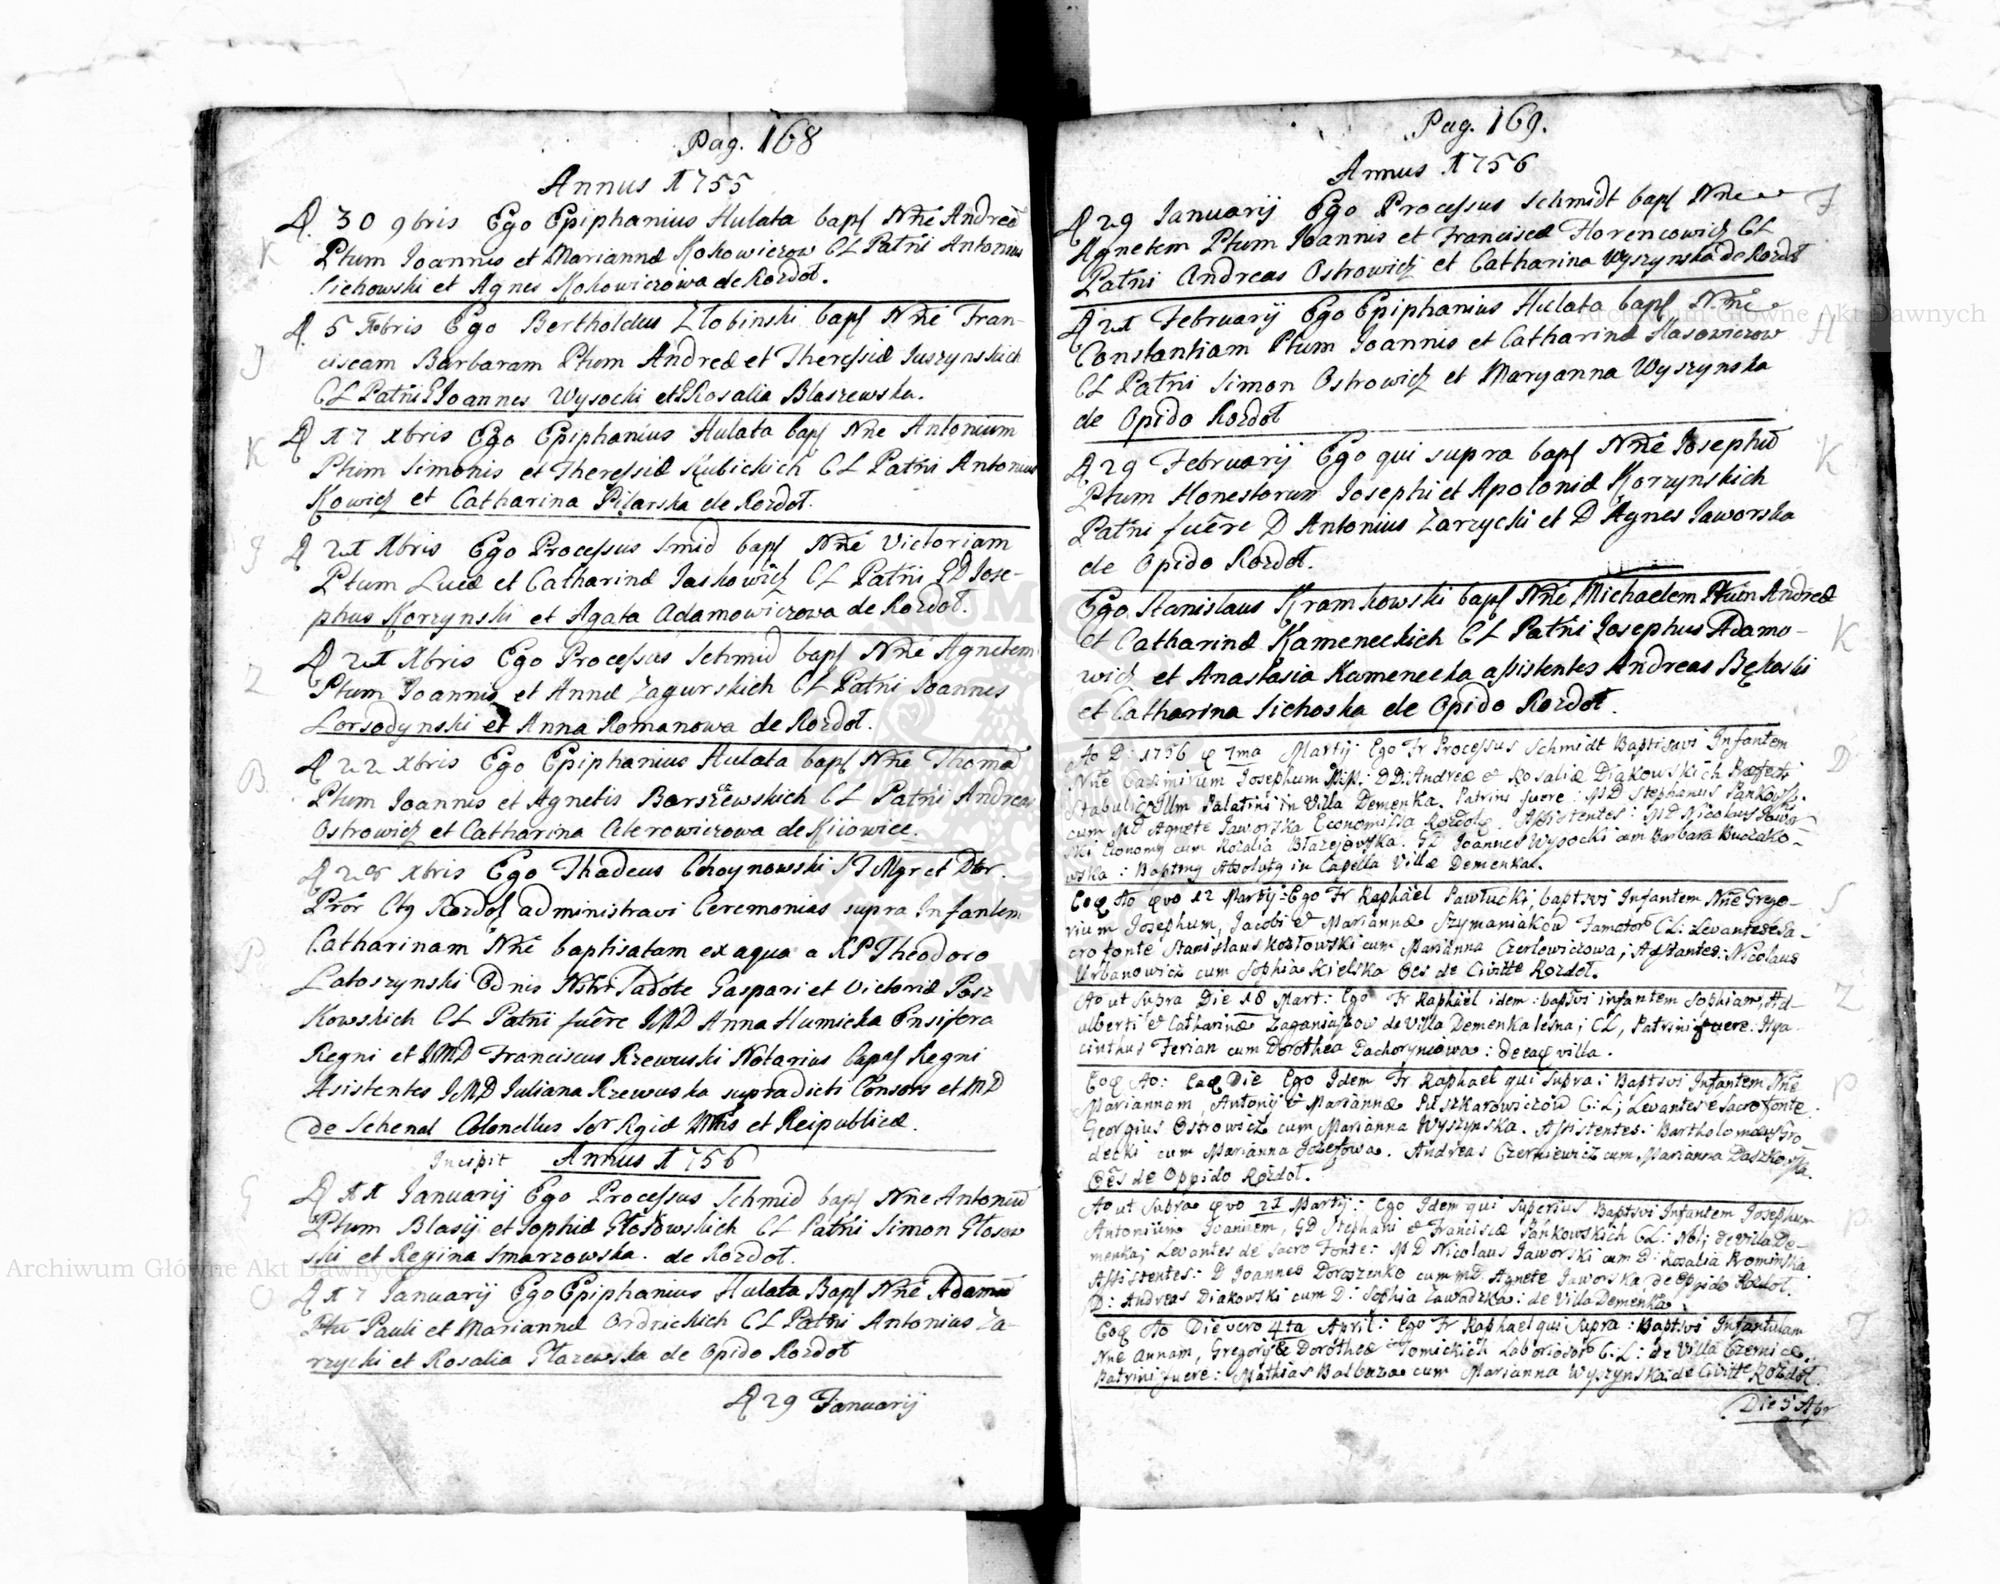 Pag. 168
Annus 1755
K
D. 30 9bris Ego Epiphanius Hulata bapt Nñe Andreã
Ptum Joannis et Mariannæ Kokowiczow CL Patñi Antonius
Sichowski et Agnes Kokowiczowa de Rozdoł.
J
D. 5 Xbris Ego Bertholdus Złobinski bapt Nñe Fran-
ciscam Barbaram Ptum Andreæ et Theressiæ Juszynskich
CL Patñi Joannes Wysocki et Rosalia Błaszewska.
K
D 17 Xbris Ego Epiphanius Hulata bapt Nñe Antonium
Ptum Simonis et Theressiæ Kubickich CL Patñi Antonius
Kowicz et Catharina Pilarska de Rozdoł.
J
D 21 Xbris Ego Processus Smid bapt Nñe Victoriam
Ptum Lucæ et Catharinæ Jaskowicz CL Patñi PD Jose-
phus Korzynski et Agata Adamowiczowa de Rozdoł.
Z
D 21 Xbris Ego Processus Schmid bapt Nñe Agnetem
Ptum Joannis et Annæ Zagurskich CL Patñi Joannes
et Anna Romanowa de Rozdoł.
B
D 22 Xbris Ego Epiphanius Hulata bapt Nñe Thomã
Ptum Joannis et Agnetis Barszczewskich CL Patñi Andreas
Ostrowicz et Catharina de Kijowiec.
P
D 28 Xbris Ego Thadeus Choynowski ST Mgr et Dor.
Prõr Ctg Rozdoł administravi Ceremonias supra Infantem
Catharinam Nñe baptisatam ex aqua a RP Theodoro
Latoszynski Odnis Nstri Sadóte Gaspari et Victoriæ Posz
Kowskich CL Patñi fuêre IMD Anna Humicka Ensifera
Regni et IMD Franciscus Rzewuski Notarius Regni
Asistentes IMD Juliana Rzewuska supradicti Consors et MD
de Schenal Colonellus Sor Rgiæ Mtis et Reipublicæ.
Incipit Annus 1756
G
D 11 Januarij Ego Processus Schmid bapt Nñe Antoniũ
Ptum Blasij et Sophiæ Głosowskich CL Patñi Simon Głosow
ski et Regina Smarzowska. de Rozdoł.
O
D 17 Januarij Ego Epiphanius Hulata Bapt Nñe Adamũ
Ptũ Pauli et Mariannæ Ordnickich CL Patñi Antonius Za-
rzycki et Rosalia Płazewska de Opido Rozdoł
D 29 Januarij
Pag. 169.
Annus 1756
F
D 29 Januarij Ego Processus Schmidt bapt Nñe
Agnetem Ptum Joannis et Franciscæ Florencowicz CL
Patñi Andreas Ostrowicz et Catharina Wyszynska de Rozdoł
H
D 21 Februarij Ego Epiphanius Hulata bapt Nñe
Constantiam Ptum Joannis et Catharinæ Hasowiczow
CL Patñi Simon Ostrowicz et Maryanna Wyszynska
de Opido Rozdoł
K
D 29 Februarij Ego qui supra bapt Nñe Josephũ
Ptum Honestorum Josephi et Apoloniæ Korzynskich
Patñi fuêre D Antonius Zarzycki et D Agnes Jaworska
de Opido Rozdoł.
K
Ego Stanislaus Kramkowski bapt Nñe Michaelem Ptum Andreæ
et Catharinæ Kameneckich CL Patñi Josephus Adamo-
wicz et Anastasia Kamenecka assistentes Andreas Bękoski
et Catharina Sichoska de Opido Rozdoł.
D
Ao D: 1756 q 7ma Martij: Ego Fr Processus Schmidt Baptisavi Infantem
Nñe Casimirum Josephum DD: Andreæ et Rosaliæ Diakowskich Præfecti
Stabuli Palatini in Villa Demenka. Patrini fuere: MD Stephanus Pankows.
cum MD Agnete Jaworska Economissa Rozdoł. Assistentes: MD Nicolaus Jawo-
ski Economy cum Rozalia Błażejowska. GD Joannes Wysocki cum Barbara Buczako-
wska: in Capella Villæ Demenka.
S
Eoq Ao qvo 12 Martij: Ego Fr Raphaël Pawłucki, baptsvi Infantem Nñe Grego-
rium Josephum, Jacobi et Mariannæ Szymaniakow Famator CL: Levantes de sa-
cro fonte Stanislaus Kozłowski cum Marianna Czerlewiczowa; Asstantes: Nicolaus
Urbanowicz cum Sophia Kielska Oes de Civitte Rozdoł.
Z
Ao ut supra Die 18 Mart: Ego Fr Raphaël idem: baptsvi infantem Sophiam, Ad-
alberti et Catharinæ Zaganiaszow de Villa Demenka lesna; CL, Patrini fuere: Hya-
cinthus Ferian cum Dorothea Pachoryniowa: de eaq villa.
P
Eoq Ao: Eaq Die Ego Idem Fr Raphaël qui supra: Baptsvi Infantem Nñe
Mariannam, Antonij et Mariannæ Puszkarowiczow C:L; Levantes e Sacro fonte:
Georgius Ostrowicz cum Marianna Wyszynska. Assistentes: Bartholomæus Gro-
decki cum Marianna Jozefowa. Andreas Czerkiewicz cum Marianna Daszkowska.
Oês de Oppido Rozdoł.
P
Ao ut supra qvo 21 Martij: Ego Idem qui superius Baptsvi Infantem Josephum
Antonium Joannem, GD Stephani et Franciscæ Pańkowskich CL: Nbl; de Villa De-
menka; Levantes de Sacro Fonte: MD Nicolaus Jaworski cum D: Rosalia Krominska
Assistentes: D Joannes Doroszenko cum MD Agnete Jaworska de Oppido Rozdoł.
D: Andreas Diakowski cum D: Sophia Zawadzka: de Villa Demenka.
T
Eoq Ao Die vero 4ta April: Ego Fr Raphael qui supra: Baptsvi Infantulam
Nñe Annam, Gregorij et Dorotheæ Tomickich Laboriosor C:L: de Villa Czernica.
Patrini fuere: Mathias Balbuza cum Marianna Wyszynska: de Civitte Rozdoł.
Die 5 Apr
Archiwum Główne Akt Dawnych
Archiwum Główne Akt Dawnych